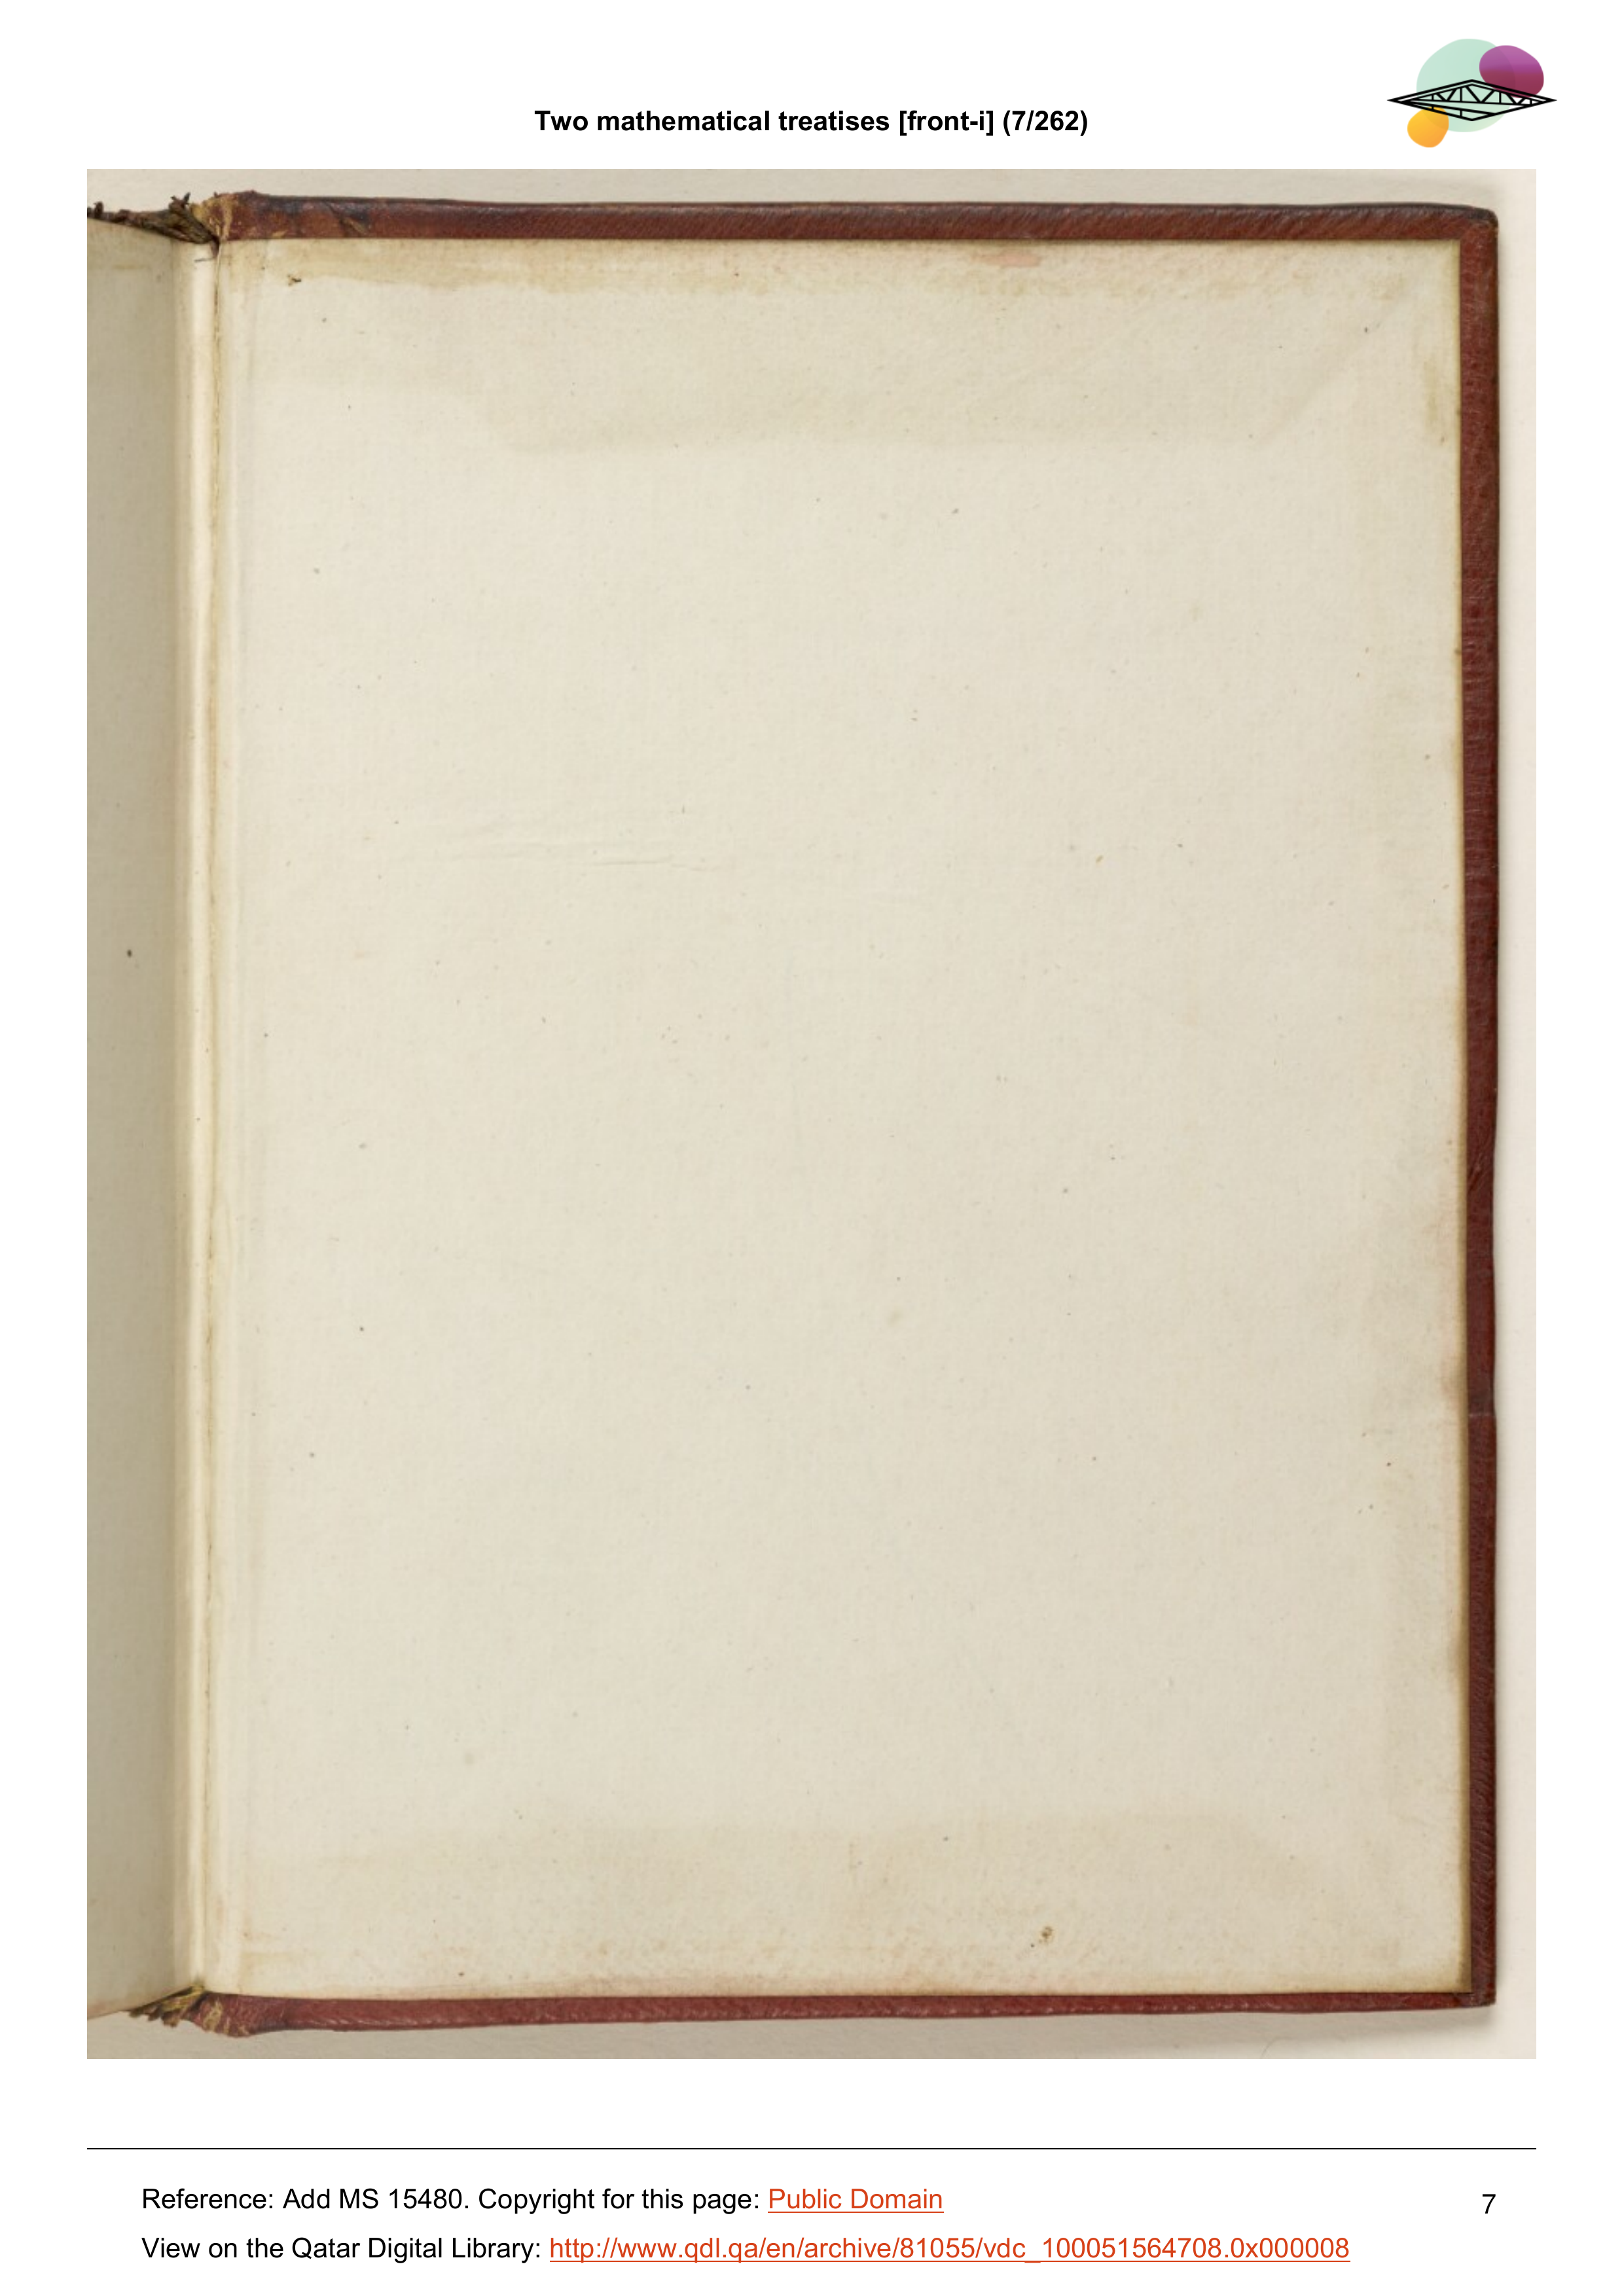 Two mathematical treatises [front-i] (7/262)
Reference: Add MS 15480. Copyright for this page: Public Domain
7
View on the Qatar Digital Library: http://www.qdl.qa/en/archive/81055/vdc_100051564708.0x000008